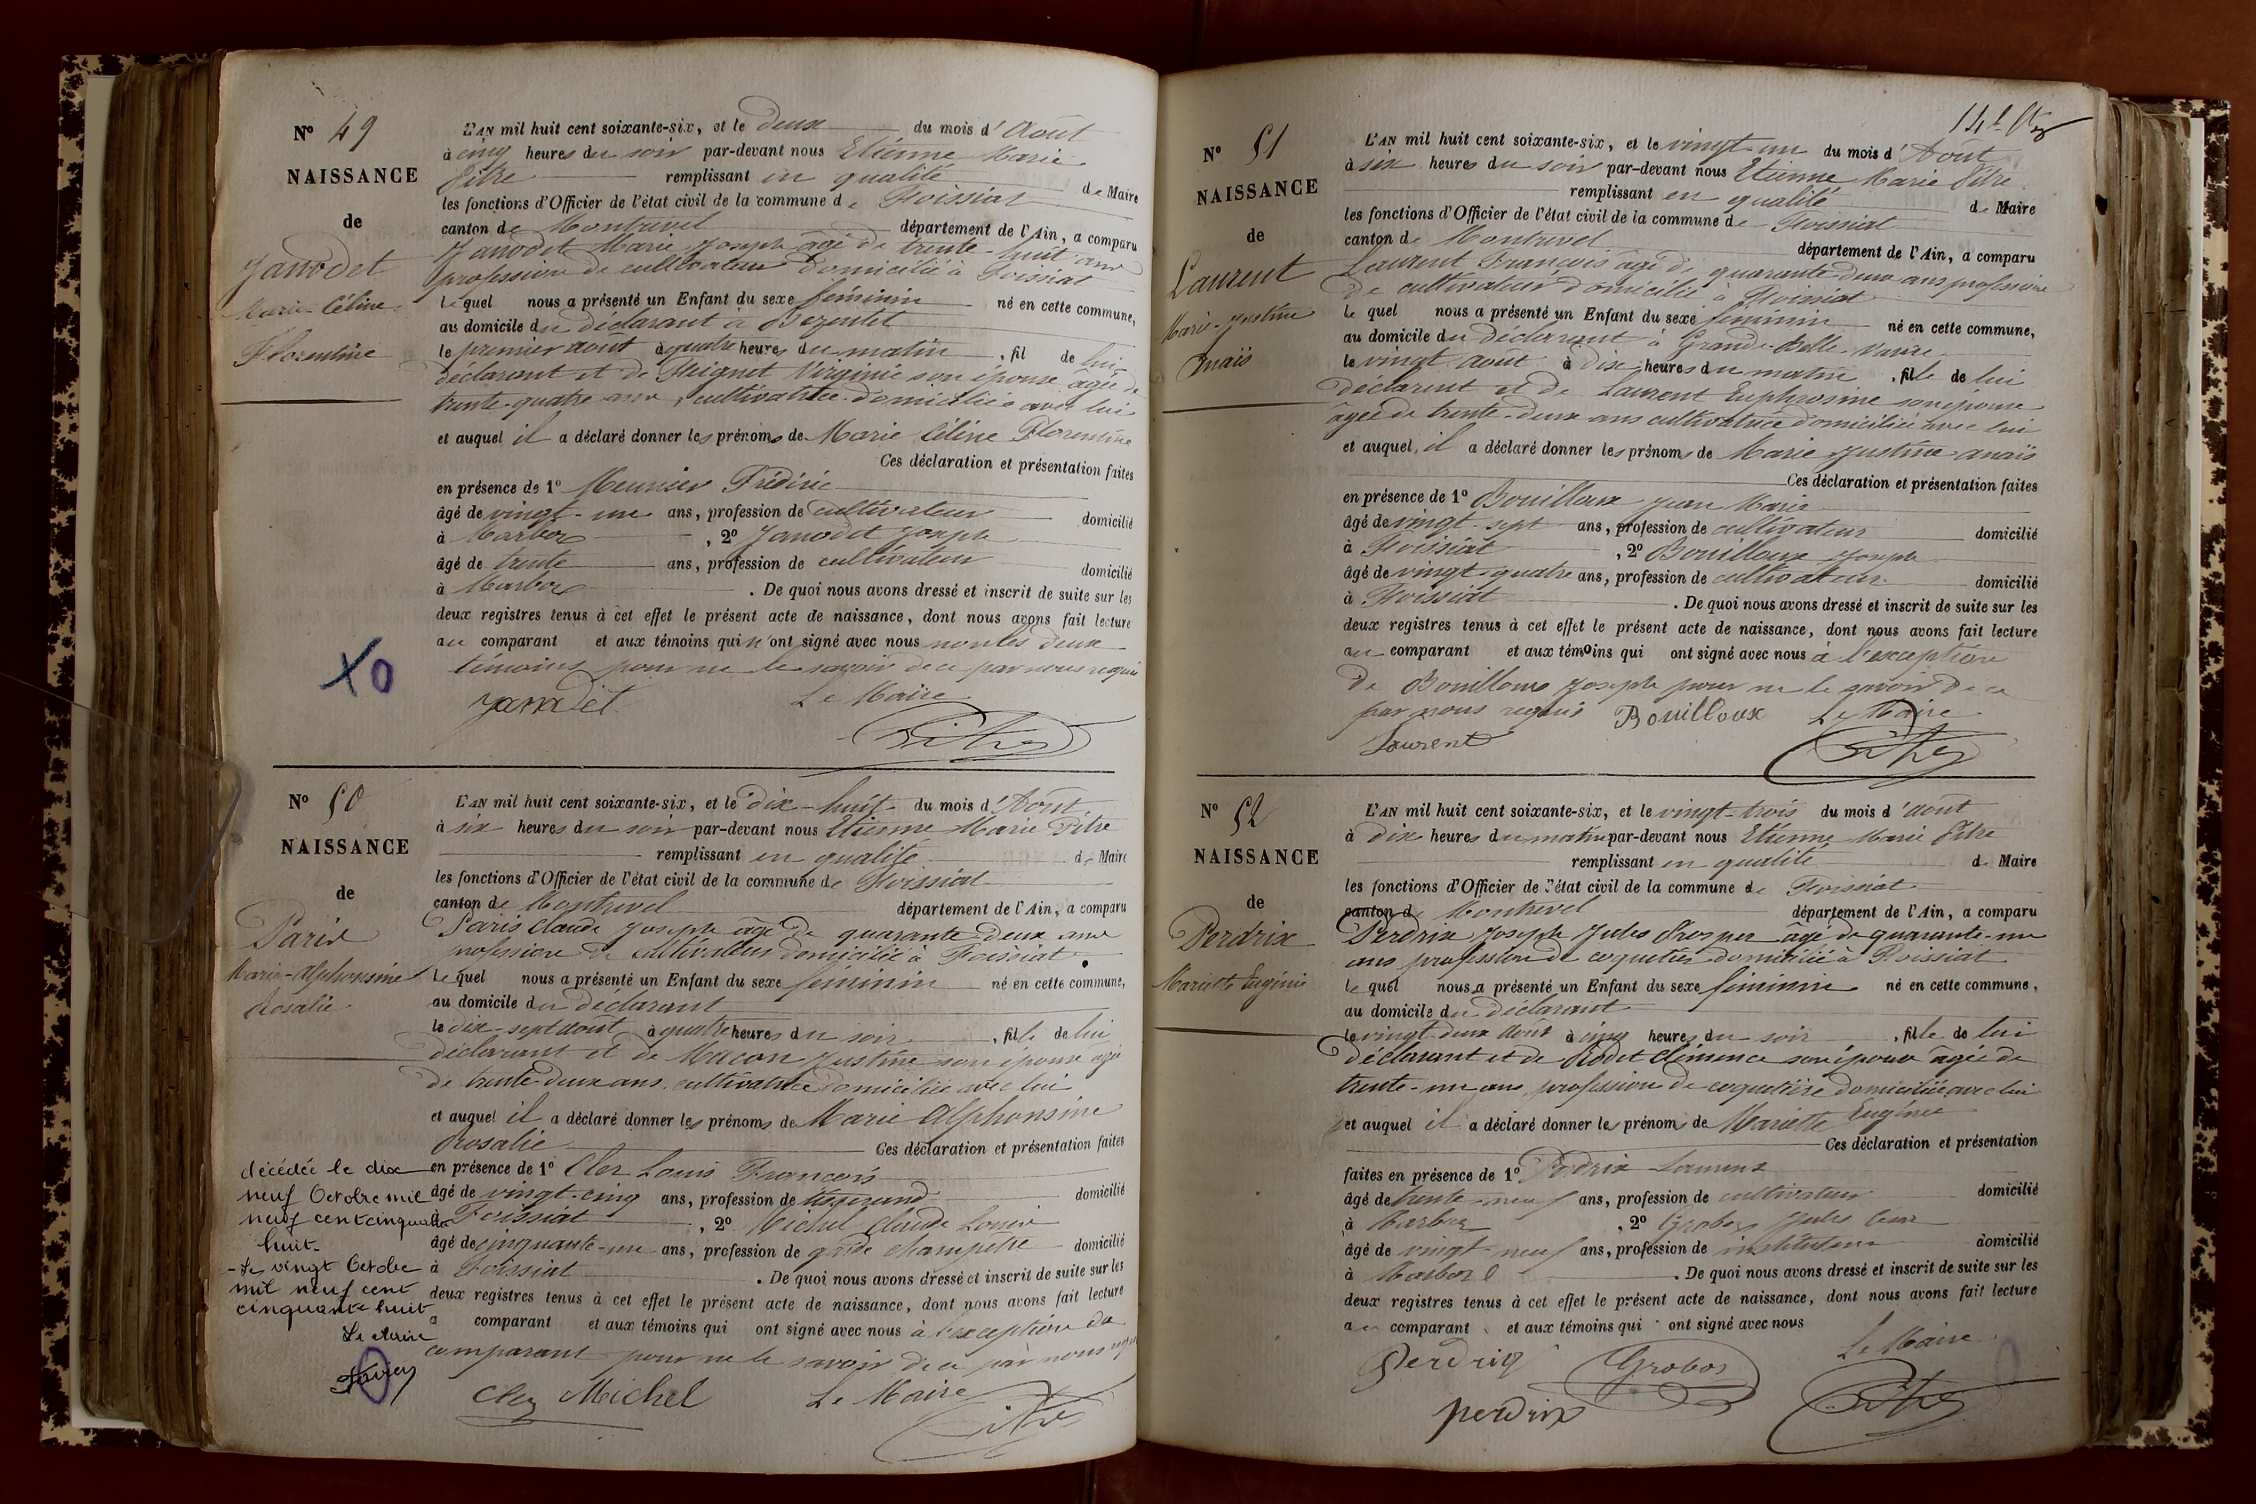 N° 49
NAISSANCE
de
Janodet
Marie-Céline
Florentine
L'AN mil huit cent soixante-six, et le deux du mois d'Août
à cinq heures du soir par-devant nous Etienne Marie
Pitre remplissant en qualité de Maire
les fonctions d'Officier de l'état civil de la commune de Foissiat
canton de Montrevel département de l'Ain, a comparu
Janodet Marie Joseph âgé de trente-huit ans
profession de cultivateur domicilié à Foissiat
lequel nous a présenté un Enfant du sexe féminin né en cette commune,
au domicile du déclarant à Bezentet
le premier août à quatre heures du matin, fil de lui
déclarant et de Virginie son épouse âgée de
trente-quatre ans, cultivatrice domiciliée avec lui
et auquel il a déclaré donner les prénoms de Marie Céline Florentine
Ces déclaration et présentation faites
en présence de 1° Meunier Frédéric
âgé de vingt-un ans, profession de cultivateur domicilié
à Marboz, 2° Janodet Joseph
âgé de trente ans, profession de cultivateur domicilié
à Marboz. De quoi nous avons dressé et inscrit de suite sur les
deux registres tenus à cet effet le présent acte de naissance, dont nous avons fait lecture
au comparant et aux témoins qui n'ont signé avec nous non les deux
témoins pour ne le savoir de ce par nous requis
Janodet Le Maire
Pitre
XO
N° 50
NAISSANCE
de
Paris
Marie-Alphonsine
Rosalie
L'AN mil huit cent soixante-six, et le dix-huit du mois d'Août
à six heures du soir par-devant nous Etienne Marie Pitre
remplissant en qualité de Maire
les fonctions d'Officier de l'état civil de la commune de Foissiat
canton de Montrevel département de l'Ain, a comparu
Paris Claude Joseph âgé de quarante deux ans
profession de cultivateur domicilié à Foissiat
lequel nous a présenté un Enfant du sexe féminin né en cette commune,
au domicile du déclarant
le dix-sept août à quatre heures du soir, fille de lui
déclarant et de Macon Justine son épouse âgée
de trente deux ans cultivatrice domiciliée avec lui
et auquel il a déclaré donner les prénoms de Marie Alphonsine
Rosalie Ces déclaration et présentation faites
en présence de 1° Clez Louis François
âgé de vingt-cinq ans, profession de tisserand domicilié
à Foissiat, 2° Michel Claude Louis
âgé de cinquante-un ans, profession de garde champêtre domicilié
à Foissiat. De quoi nous avons dressé et inscrit de suite sur les
deux registres tenus à cet effet le présent acte de naissance, dont nous avons fait lecture
a comparant et aux témoins qui ont signé avec nous à l'exception du
comparant pour ne le savoir de ce par nous requis
Clez Michel Le Maire
Pitre
décédée le dix
neuf Octobre mil
neuf cent cinquante
huit-
-Le vingt Octobre
mil neuf cent
cinquante huit
Le Maire
N° 51
NAISSANCE
de
Laurent
Marie-Justine
Anaïs
L'AN mil huit cent soixante-six, et le vingt-un du mois d'Août
à six heures du soir par-devant nous Etienne Marie Pitre
remplissant en qualité de Maire
les fonctions d'Officier de l'état civil de la commune de Foissiat
canton de Montrevel département de l'Ain, a comparu
Laurent François âgé de quarante-deux ans profession
de cultivateur domicilié à Foissiat
lequel nous a présenté un Enfant du sexe féminin né en cette commune,
au domicile du déclarant à Grande Belle Vavre
le vingt août à dix heures du matin, fille de lui
déclarant et de Laurent Euphrosine son épouse
âgée de trente-deux ans cultivatrice domiciliée avec lui
et auquel il a déclaré donner les prénoms de Marie Justine anaïs
Ces déclaration et présentation faites
en présence de 1° Bouilloux Jean Marie
âgé de vingt-sept ans, profession de cultivateur domicilié
à Foissiat, 2° Bouilloux Joseph
âgé de vingt-quatre ans, profession de cultivateur domicilié
à Foissiat. De quoi nous avons dressé et inscrit de suite sur les
deux registres tenus à cet effet le présent acte de naissance, dont nous avons fait lecture
au comparant et aux témoins qui ont signé avec nous à l'exception
de Bouilloux Joseph pour ne le savoir de ce
par nous requis Bouilloux Le Maire
Laurent Pitre
N° 52
NAISSANCE
de
Perdrix
Mariette Eugénie
L'AN mil huit cent soixante-six, et le vingt-trois du mois d'août
à dix heures du matin par-devant nous Etienne Marie Pitre
remplissant en qualité de Maire
les fonctions d'Officier de l'état civil de la commune de Foissiat
canton de Montrevel département de l'Ain, a comparu
Perdrix Joseph Jules Prosper âgé de quarante-un
ans profession de coquetier domicilié à Foissiat
lequel nous a présenté un Enfant du sexe féminin né en cette commune,
au domicile du déclarant
le vingt-deux août à cinq heures du soir, fille de lui
déclarant et de Rodet Clémence son épouse âgée de
trente-un ans profession de coquetière domiciliée avec lui
et auquel il a déclaré donner les prénoms de Mariette Eugénie
Ces déclaration et présentation
faites en présence de 1° Perdrix Laurent
âgé de trente-neuf ans, profession de cultivateur domicilié
à Marboz, 2° Grobos Jules César
âgé de vingt-neuf ans, profession de instituteur domicilié
à Marboz. De quoi nous avons dressé et inscrit de suite sur les
deux registres tenus à cet effet le présent acte de naissance, dont nous avons fait lecture
au comparant et aux témoins qui ont signé avec nous
Le Maire
Perdrix Grobos Pitre
perdrix